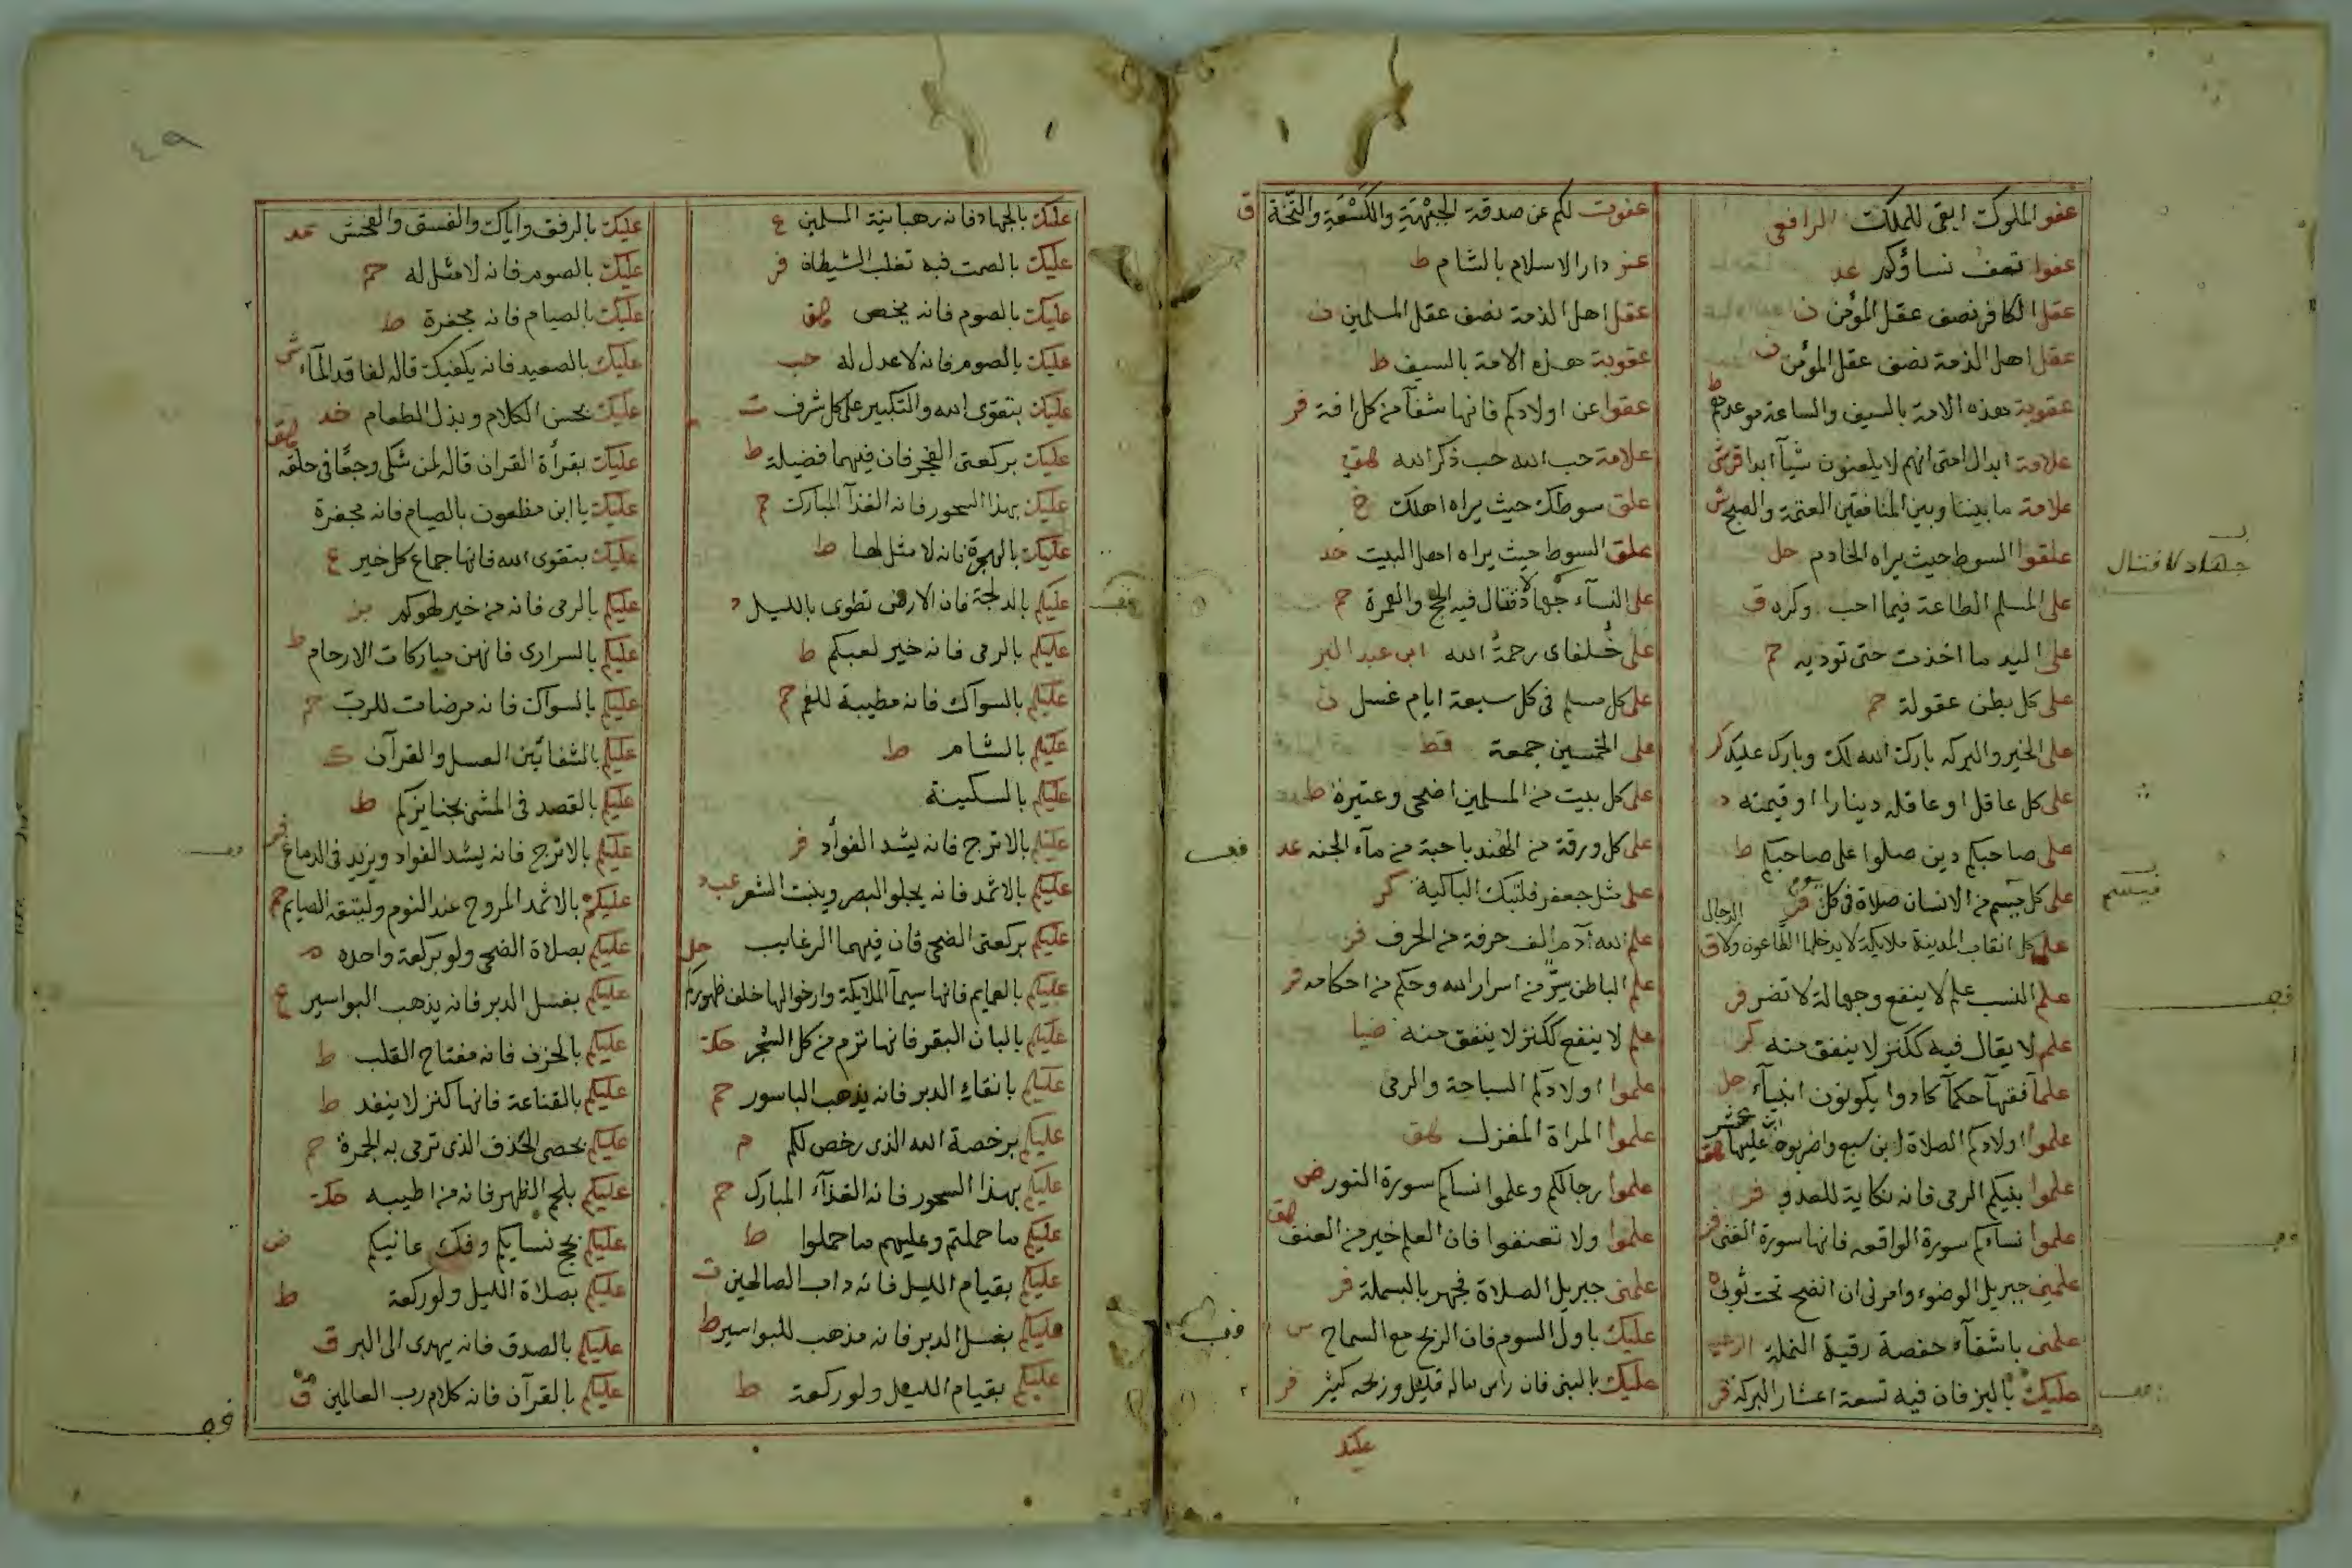 عفو الملوك ابقى للملك الرافعى
عفوا تعف نساؤكم عد
عقل الكافر نصف عقل المؤمن ن
عقل اهل الذمة نصف عقل المؤمن ن
عقوبة هذه الامة بالسيف والساعة موعدهم ط
علامة ابدال امتى انهم لا يلعنون شيأ ابدا
علامة ما بيننا وبين المنافقين العتمة والصبح ش
علقوا السوط حيث يراه الخادم حل
على المسلم الطاعة فيما احب وكره ق
على اليد ما اخذت حتى تؤديه حم
على كل بطن عقولة حم
على الخير والبركه بارك الله لك وبارك عليك كر
على كل عاقل او عاقله دينارا او قيمته د
على صاحبكم دين صلوا على صاحبكم ط
على كل ميسم من الانسان صلاة فى كل يوم
على كل انقاب المدينة ملايكة لا يدخلها الطاعون ولا الدجال ق
علم النسب علم لا ينفع وجهالة لا تضر فر
علم لا يقال فيه ككنز لا ينفق منه كر
علمآ فقهآ حكمآ كادوا يكونون انبيآء حل
علموا اولادكم الصلاة ابن سبع واضربوه عليها ابن عشر هق
علموا بنيكم الرمى فانه نكاية للعدو فر
علموا نساءكم سورة الواقعه فانها سورة الغنى فر
علمنى جبريل الوضوء وامرنى ان انضح تحت ثوبى ه
علمى ياشفآء حفصة رقية النملة
عليك بالبز فان فيه تسعة اعشار البركة فر
جهاد لا قتال
عفوت لكم عن صدقة الجبهة والكسعة والنخة ق
عقر دار الاسلام بالشام ط
عقل اهل الذمة نصف عقل المسلمين ن
عقوبة هذه الامة بالسيف ط
عقوا عن اولادكم فانها شفآ من كل افة فر
علامة حب الله حب ذكر الله هق
علق سوطك حيث يراه اهلك خ
علق السوط حيث يراه اهل البيت خد
على النسآء جهاد لا قتال فيه الحج والعمرة حم
على خلفاى رحمة الله ابن عبد البر
على كل مسلم فى كل سبعة ايام غسل ن
على الخمسين جمعة قط
على كل بيت من المسلمين اضحى وعتيرة ط
على كل ورقة من الهندبا حبة من مآء الجنه عد
على مثل جعفر فلتبك الباكية كر
علم الله آدم الف حرفة من الحرف فر
علم الباطن سر من اسرار الله وحكم من احكامه فر
علم لا ينفع ككنز لا ينفق منه ضيا
علموا اولادكم السباحة والرمى
علموا المراة المغزل هق
علموا رجالكم وعلموا نساكم سورة النور ض
علموا ولا تعنفوا فان العلم خير من العنف هق
علمنى جبريل الصلاة فجهر بالبسملة فر
عليك باول السوم فان الربح مع السماح س
عليك بالبنى فان راس ماله قليل وربحه كثير فر
عليك
عليك بالجهاد فانه رهبانية المسلمين ع
عليك بالصمت فبه تغلب الشيطان فر
عليك بالصوم فانه يخصى هق
عليك بالصوم فانه لا عدل له حب
عليك بتقوى الله والتكبير على كل شرف ت
عليك بركعتى الفجر فان فيهما فضيلة ط
عليك بهذا السحور فانه الغذآ المبارك حم
عليك بالهجرة فانه لا مثل لها ط
عليكم بالدلجة فان الارض تطوى بالليل د
عليكم بالرمى فانه خير لعبكم ط
عليكم بالسواك فانه مطيبة للفم حم
عليكم بالشام ط
عليكم بالسكينة
عليكم بالاترج فانه يشد الفوآد فر
عليكم بالاثمد فانه يجلو البصر وينبت الشعر
عليكم بركعتى الضحى فان فيهما الرغايب حل
عليكم بالعمايم فانها سيمآ الملايكة وارخوا لها خلف ظهوركم
عليكم بالبان البقر فانها ترم من كل الشجر حك
عليكم بانقاء الدبر فانه يذهب الباسور حم
عليكم برخصة الله الذى رخص لكم م
عليكم بهذا السحور فانه الغذآء المبارك حم
عليكم ما حملتم وعليهم ما حملوا ط
عليكم بقيام الليل فانه داب الصالحين ت
عليكم بغسل الدبر فانه مذهب للبواسير ط
عليكم بقيام الليل ولو ركعة ط
٤٩
عليك بالرفق واياك والفسق والفحش خد
عليك بالصوم فانه لا مثل له حم
عليك بالصيام فانه مجفرة ط
عليك بالصعيد فانه يكفيك قاله لفاقد المآء ش
عليك بحسن الكلام وبذل الطعام خد
عليك بقرأة القران قاله لمن شكى وجعا فى حلقه هق
عليك يا ابن مظعون بالصيام فانه مجفرة
عليك بتقوى الله فانها جماع كل خير ع
عليكم بالرمى فانه من خير لهوكم بز
عليكم بالسرارى فانهن مباركات الارحام ط
عليكم بالسواك فانه مرضات للرب حم
عليكم بالشفائين العسل والقرآن ك
عليكم بالقصد فى المشى بجنايزكم ط
عليكم بالاترج فانه يشد الفواد ويزيد فى الدماغ
عليكم بالاثمد المروح عند النوم وليتقه الصايم حم
عليكم بصلاة الضحى ولو بركعة واحده
عليكم بغسل الدبر فانه يذهب البواسير ع
عليكم بالحزن فانه مفتاح القلب ط
عليكم بالقناعة فانها كنز لا ينفد ط
عليكم بحصى الخذف الذى ترمى به الجمرة حم
عليكم بلحم الظهر فانه من اطيبه حك
عليكم بحج نسايكم وفك عانيكم ض
عليكم بصلاة الليل ولو ركعة ط
عليكم بالصدق فانه يهدى الى البر ق
عليكم بالقرآن فانه كلام رب العالمين